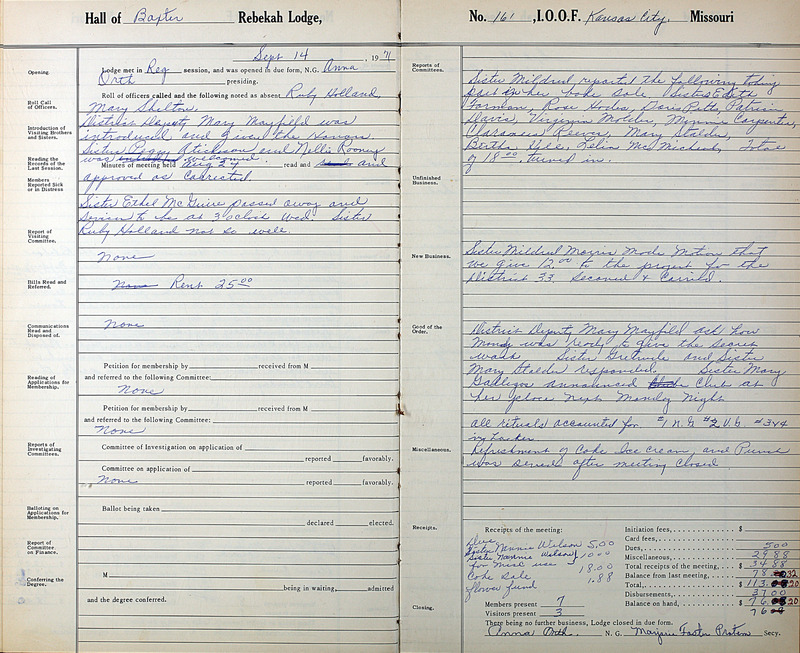 Hall of Baxter Rebekah Lodge,
Sept 14, 1971
Opening. Lodge met in Reg session, and was opened in due form, N.G. Anna
Orth presiding.
Roll Call of Officers. Roll of officers called and the following noted as absent Ruby Holland,
Mary Shelton.
Introduction of Visiting Brothers and Sisters. District Deputy Mary Mayfield was
introduced and given the Honors.
Sister Peggy Atchison and Nelli Rooney
was welcomed.
Reading the Records of the Last Session. Minutes of meeting held Aug 24 read and and
approved as corrected
Members Reported Sick or in Distress
Sister Ethel McGuire passed away and
service to be at 3 oclock Wed. Sister
Ruby Holland not so well.
Report of Visiting Committee.
None
Bills Read and Referred. None Rent 25 00
Communications Read and Disposed of. None
Reading of Applications for Membership.
Petition for membership by received from M
and referred to the following Committee:
None
Petition for membership by received from M
and referred to the following Committee:
None
Reports of Investigating Committees. Committee of Investigation on application of
reported favorably.
Committee on application of
None reported favorably.
Balloting on Applications for Membership. Ballot being taken
declared elected.
Report of Committee on Finance.
Conferring the Degree. M
being in waiting, admitted
and the degree conferred.
No. 161, I.O.O.F. Kansas City, Missouri
Reports of Committees.
Sister Mildred reported the following taking
part in her bake sale. Sisters Edith
Forman, Rose Hodes, Doris Roth, Patricia
Davis, Virginia Motder, Minnie Carpenter,
Clarance Reever, Mary Stalder,
Bertha Yple, Zelia McMichael, Total
of 18 00 turned in.
Unfinished Business.
New Business. Sister Mildred Morris made Motion that
we give 12.00 to the project for the
District 33. Second & Carried.
Good of the Order. District Deputy Mary Mayfild ask how
Many was ready to give the secret
work Sister Gretrude and Sister
Mary Stalder responded. Sister Mary
announced Club at
her place next Monday Night
all rituals accounted for #1 N.G #2 V.G. #3 & 4
Miscellaneous. Refreshment of Cake Ice Cream, and Punch
was served after meeting closed
Receipts. Receipts of the meeting:
Dues
Sister Minnie Wilson 5.00
Sister Nannie Watson 10.00
for misc use
Cake Sale 18.00
flower fund 1.88
Initiation fees, $
Card fees,
Dues, 5 00
Miscellaneous, 29 88
Total receipts of the meeting, $ 34 88
Balance from last meeting, 78 32
Total, $ 113. 20
Disbursements, 37 00
Balance on hand, $ 76 20
76
Members present 7
Visitors present 3
Closing. There being no further business, Lodge closed in due form.
Anna Orth. N. G. Marjorie Foster Protem Secy.